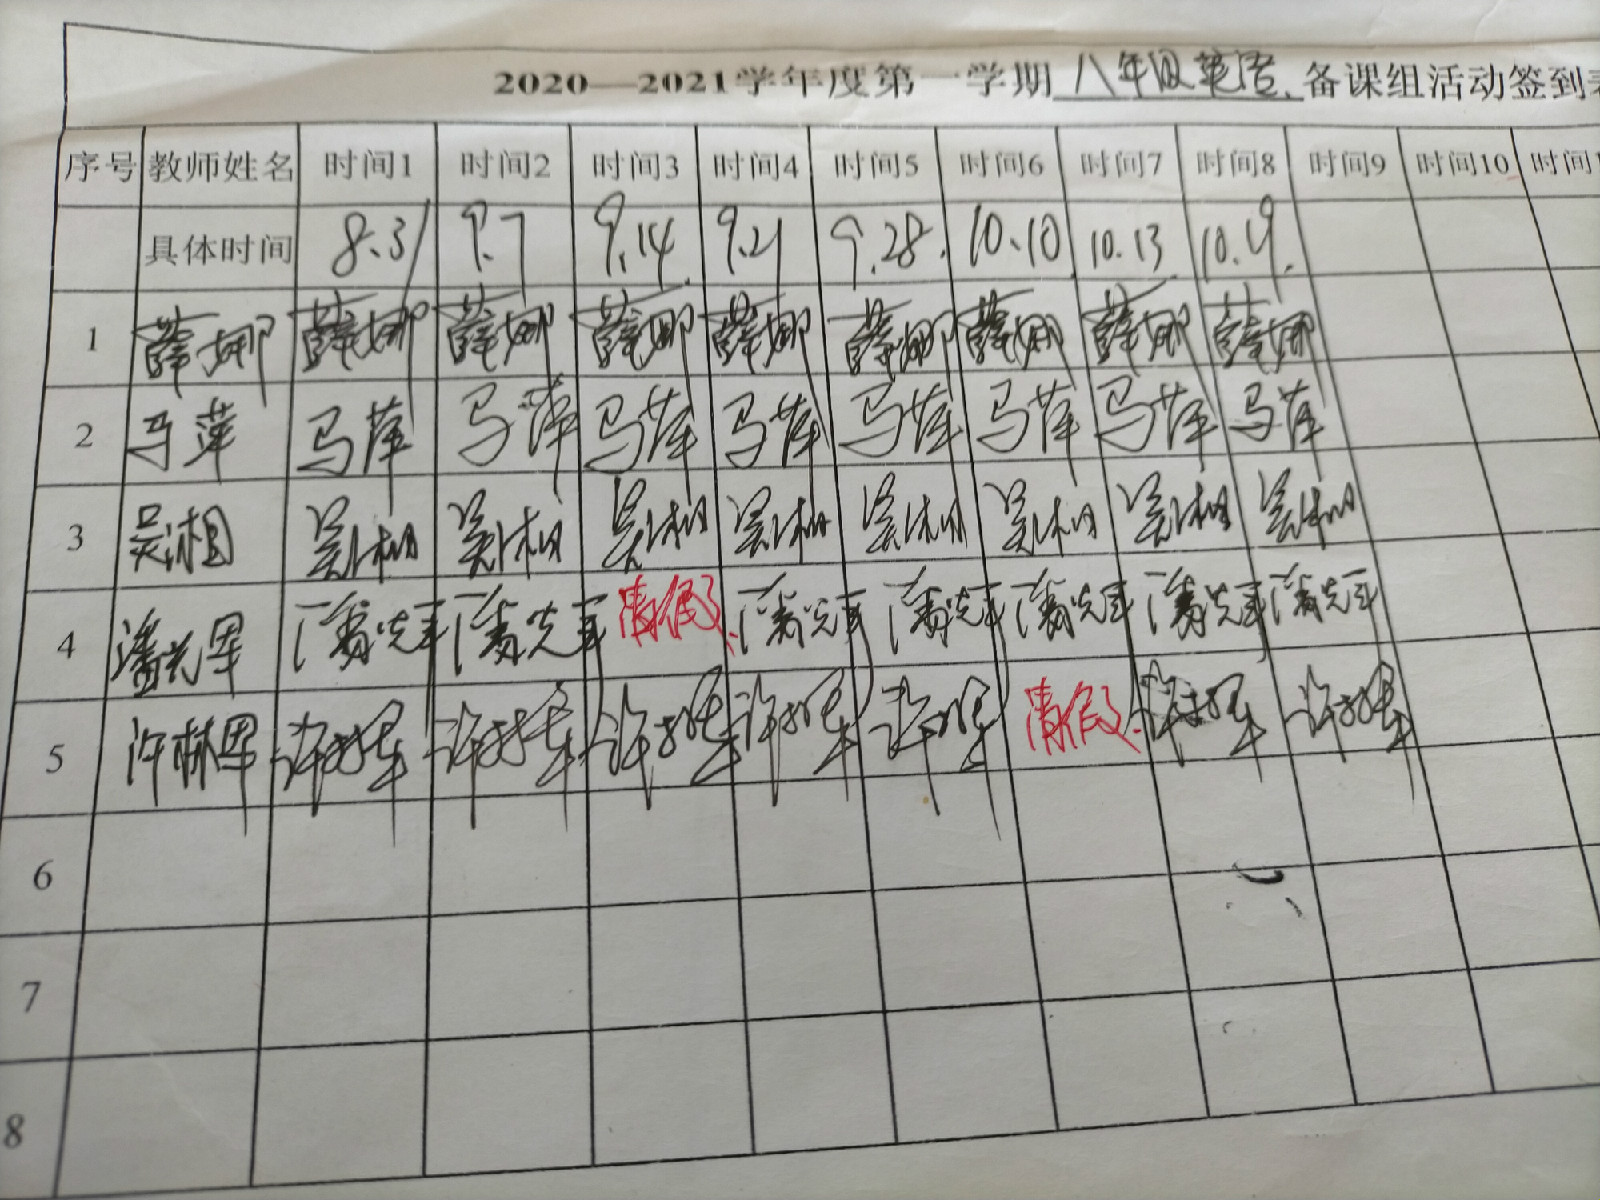 2020—2021学年度第一学期八年级英语备课组活动签到表
序号 教师姓名 时间1 时间2 时间3 时间4 时间5 时间6 时间7 时间8 时间9 时间10 时间1
具体时间 8.31 9.7 9.14 9.21 9.28. 10.10 10.13. 10.19.
1 薛娜 薛娜 薛娜 薛娜 薛娜 薛娜 薛娜 薛娜 薛娜
2 马萍 马萍 马萍 马萍 马萍 马萍 马萍 马萍 马萍
3 吴湘 吴湘 吴湘 吴湘 吴湘 吴湘 吴湘 吴湘 吴湘
4 潘光军 潘光军 潘光军 请假. 潘光军 潘光军 潘光军 潘光军 潘光军
5 许林军 许林军 许林军 许林军 许林军 许林军 请假. 许林军 许林军
6
7
8